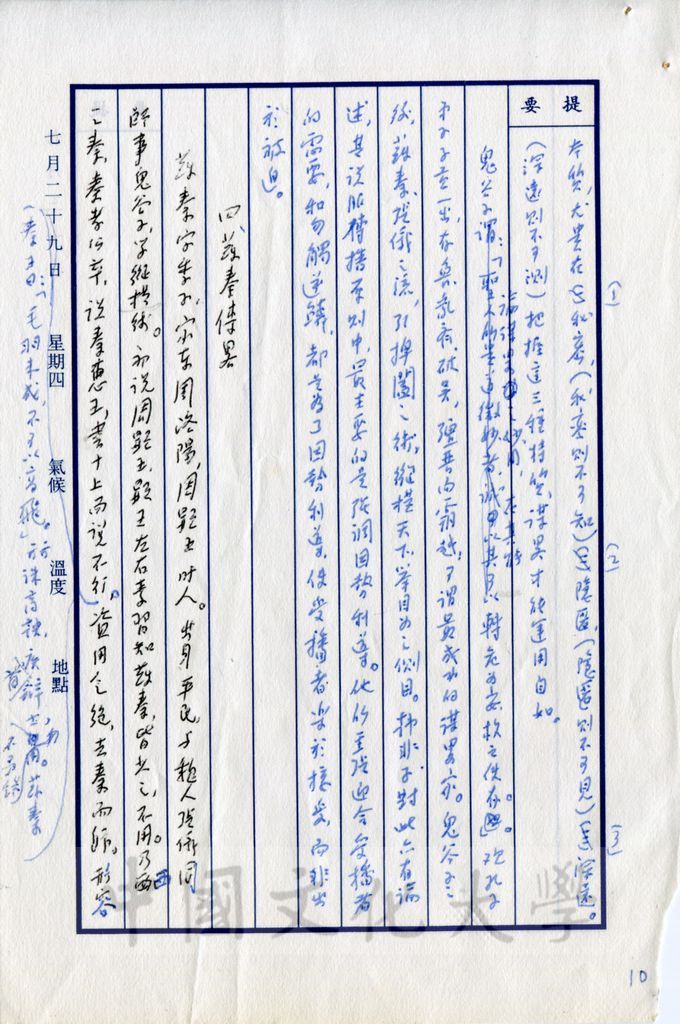 提要
本質,尤貴在①秘密,(秘密則不可知)②隱匿,(隱匿則不可見)③深遠。
(深遠則不可測)把握這三種特質,謀略才能運用自如。
鬼谷子謂:「聖人所貴道微妙者,誠以其可以轉危為安救亡使存。」觀孔子
弟子子貢一出,存魯、亂齊、破吳、彊晉而霸越,可謂最成功的謀略家。鬼谷子之
後,蘇秦、張儀之流,引捭闔之術,縱橫天下,舉目為之側目。韓非子對此亦有論
述,其說服傳播原則中,最主要的是強調因勢利導。他的主張迎合受播者
的需要,和勿觸逆鱗,都是為了因勢利導,使受播者樂於接受,而非出
於被迫。
四、蘇秦傳略
蘇秦字季子,宋東周洛陽,周顯王時人。出身平民,與魏人張儀同
師事鬼谷子,學縱橫術。初說周顯王,顯王左右素習知蘇秦,皆少之,不用。乃西
之秦,秦孝公卒,說秦惠王,書十上而說不行。資用乏絕,去秦而歸。形容
七月二十九日 星期四 氣候 溫度 地點
(秦王曰:「毛羽未成,不可以高飛」。所誅商鞅,疾辯士,用蘇秦
10
中國文化大學